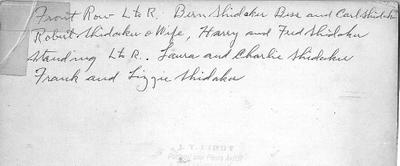 Front Row L to R. Bern Shidaker Bess and Carl Shidak
Robert Shidaker & Wife, Harry and Fred Shidaker
Standing L to R.. Laura and Charlie Shidaker
Frank and Lizzie Shidaker